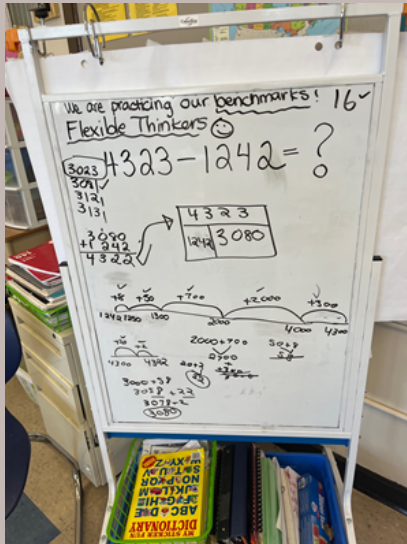 We are practicing our benchmarks! 16
Flexible Thinkers
4323-1242=?
3023
3081
3121
3131
3080
+1242
4322
4323
1242 3080
+8 +50 +700 +2000 +300
1242 1250 1300 2000 4000 4300
4300
2000+700
2700
50+8
58
20+2
3000+58
3058+22
3078+2
3080
DICTIONARY